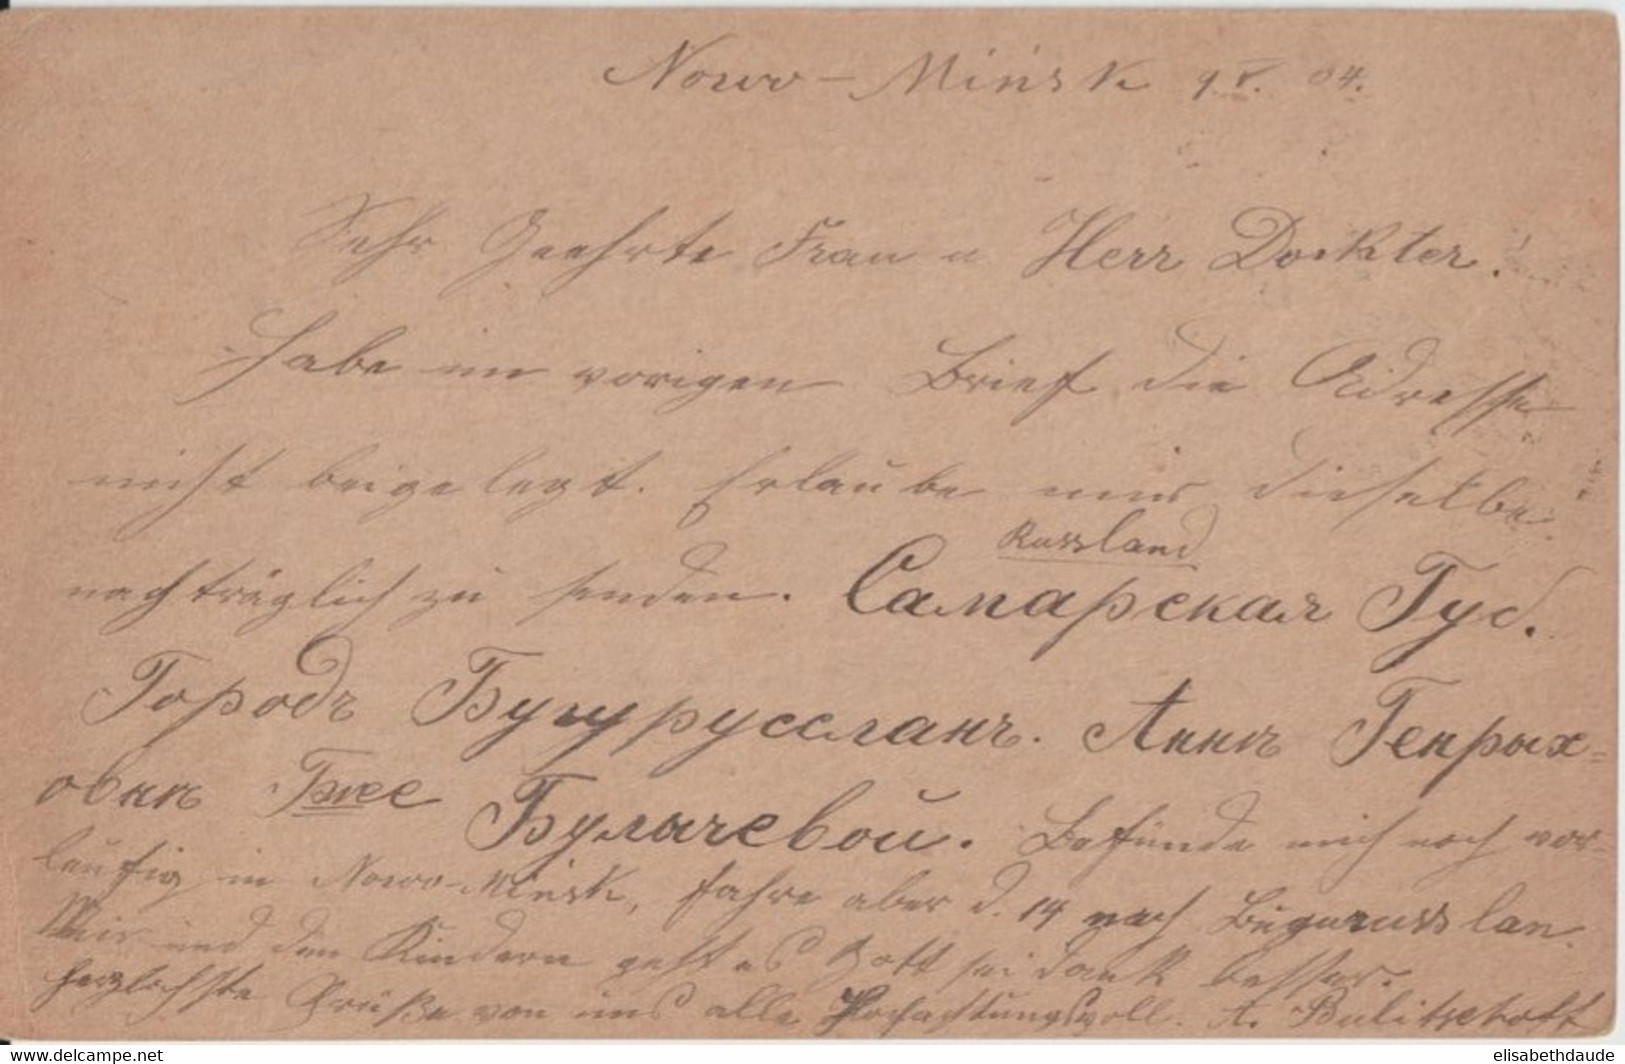 Nowo-Minsk 9 V. 04.
Sehr Geehrte Frau u Herr Dockter!
Habe im vorigen Brief die Adresse
nicht beigelegt. Erlaube mir dieselbe
Russland
nachträglich zu senden. Самарская Губ.
Городъ Бугурусланъ. Аннѣ Генрых=
овнѣ Булычевой. Befünde mich noch vor-
läufig in Nowo-Minsk, fahre aber d. 14 nach Buguruss lan.
Mir und den Kindern geht es Gott sei dank besser.
herzlichste Grüße von uns alle Hochachtungsvoll. A. Bulitschoff
delcampe.net
elisabethdaude